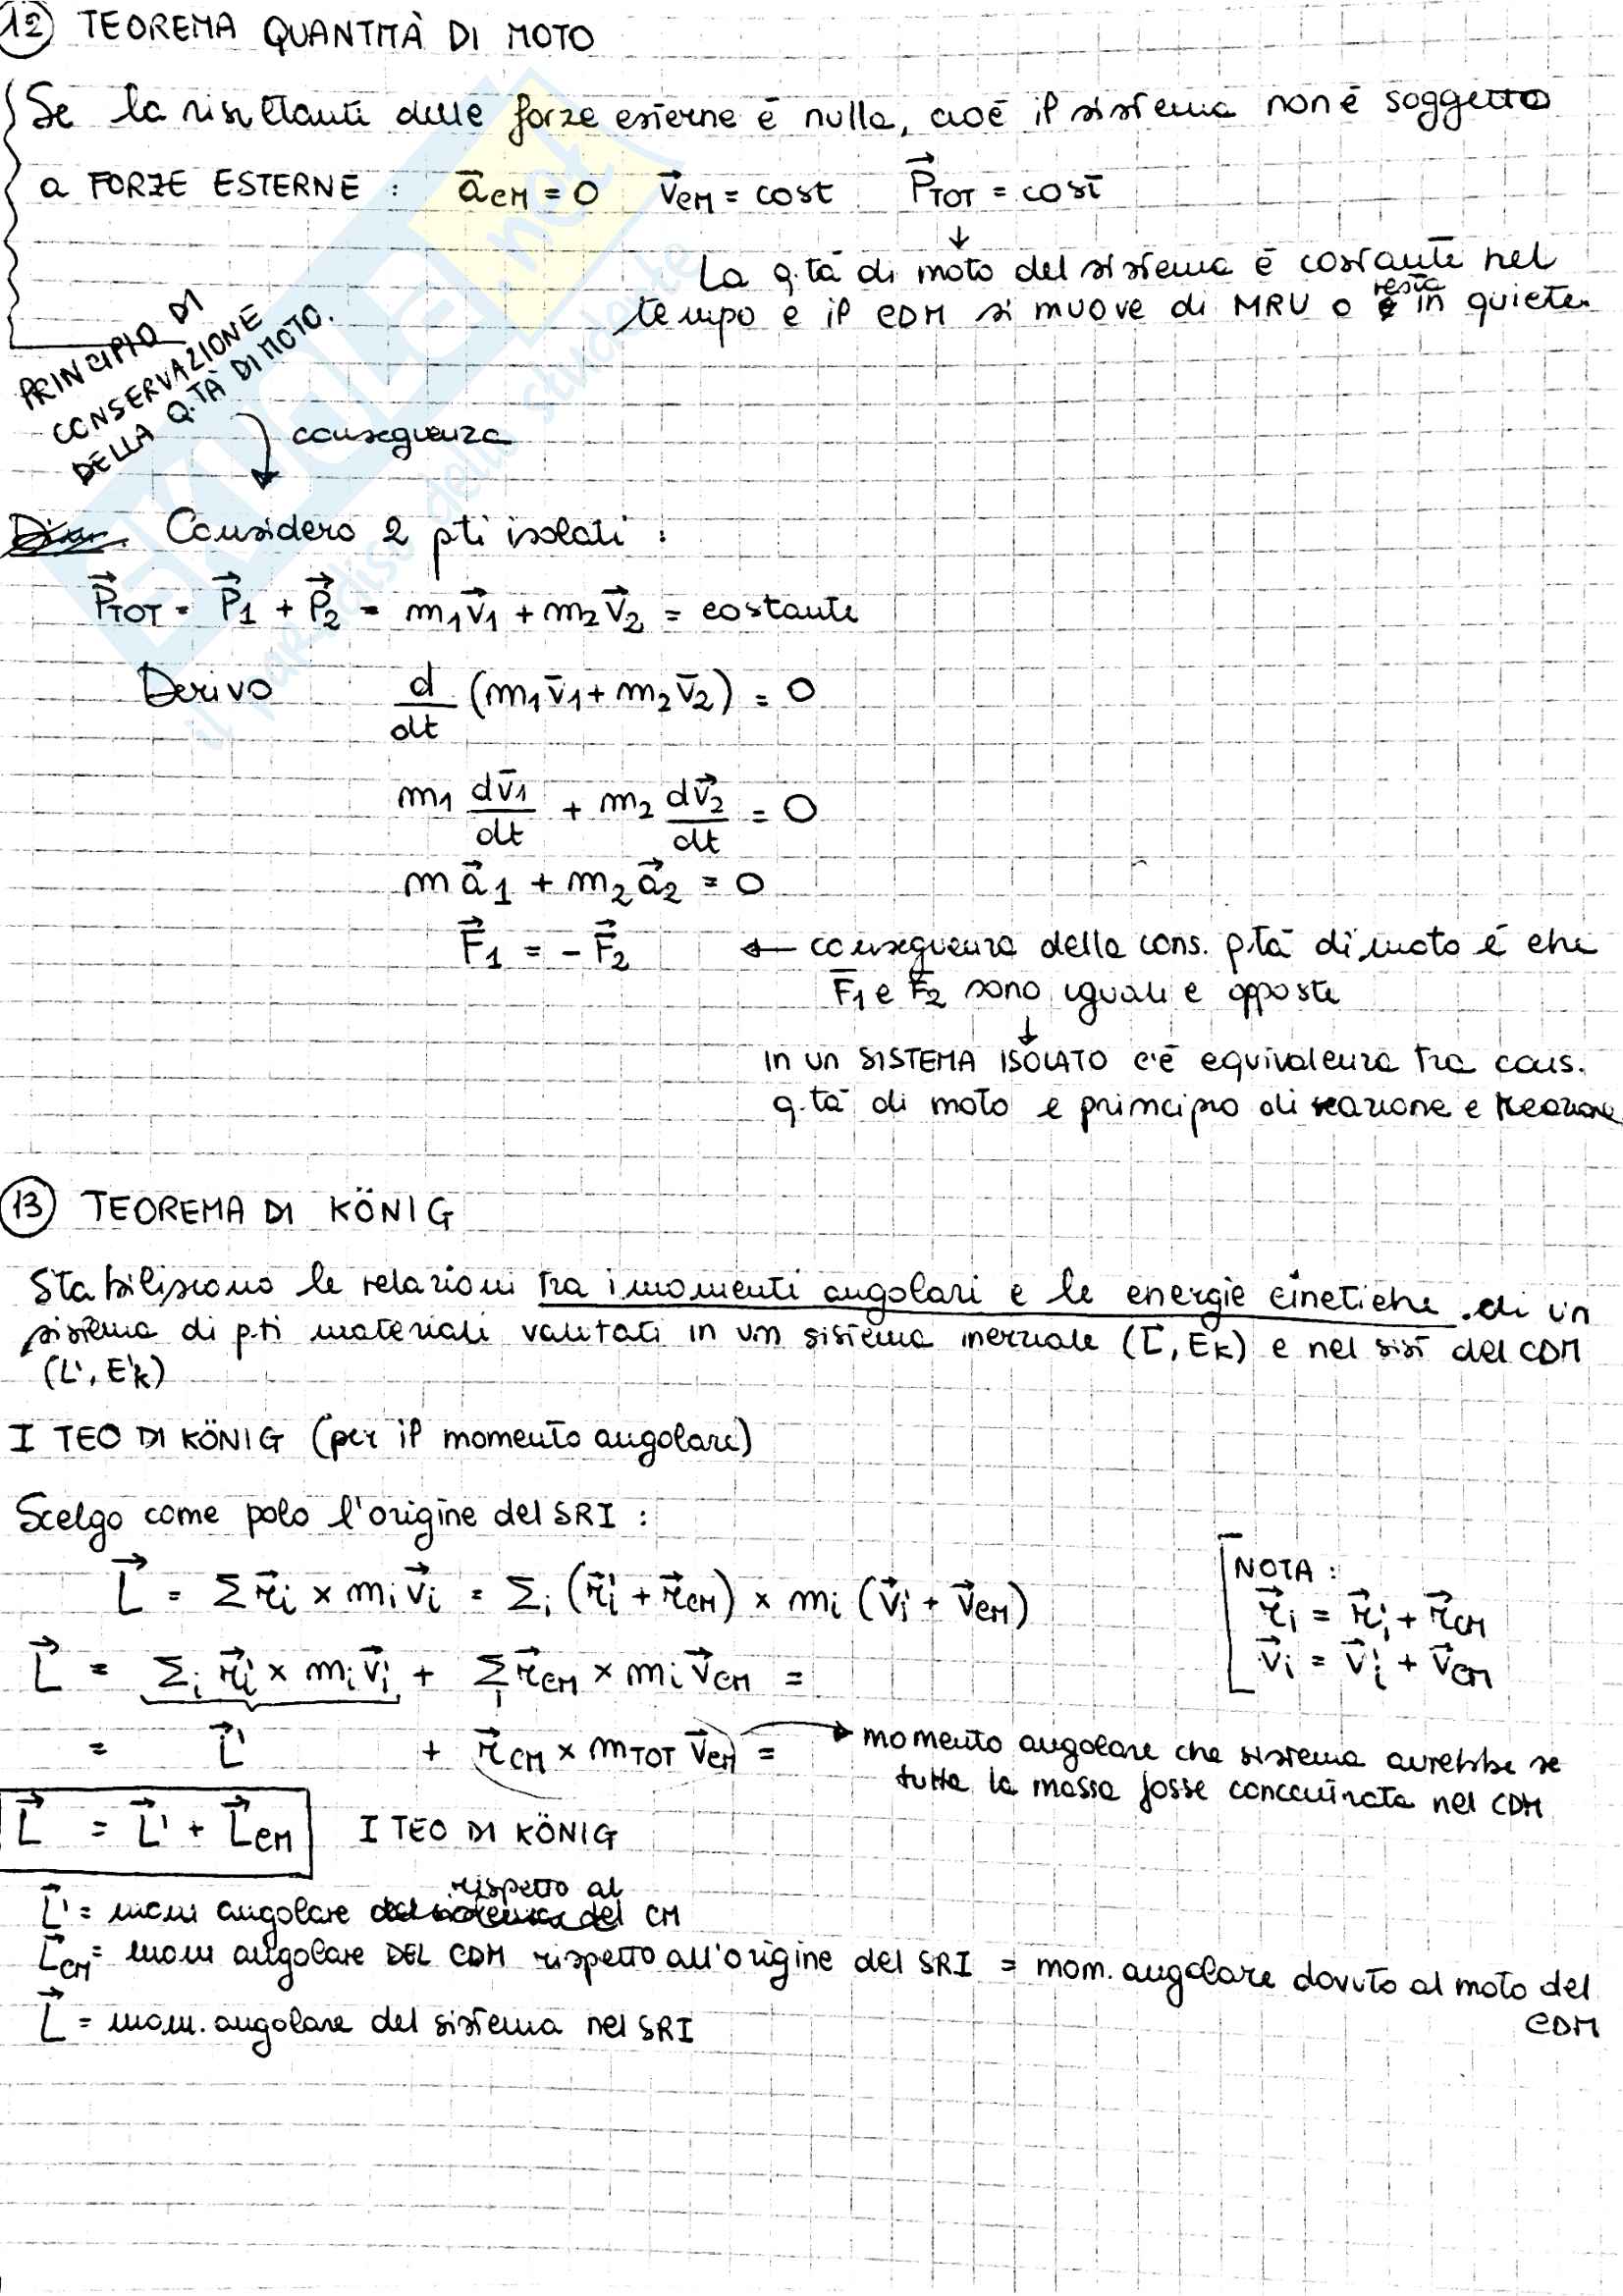 12 TEOREMA QUANTITÀ DI MOTO
Se la risultante delle forze esterne è nulla, cioè il sistema non è soggetto
a FORZE ESTERNE : a⃗CM = 0 v⃗CM = cost P⃗TOT = cost
↓
La q.tà di moto del sistema è costante nel
tempo e il CDM si muove di MRU o resta in quiete.
PRINCIPIO DI
CONSERVAZIONE
DELLA Q.TÀ DI MOTO.
conseguenza
Considero 2 pti isolati :
P⃗TOT = P⃗1 + P⃗2 = m1v⃗1 + m2v⃗2 = costante
Derivo d/dt (m1v̄1 + m2v̄2) = 0
m1 dv̄1/dt + m2 dv⃗2/dt = 0
m a⃗1 + m2 a⃗2 = 0
F⃗1 = - F⃗2 ← conseguenza della cons. q.tà di moto è che
F̄1 e F̄2 sono uguali e opposte
↓
in un SISTEMA ISOLATO c'è equivalenza tra cons.
q.tà di moto e principio di reazione e reazione
13 TEOREMA DI KÖNIG
Stabiliscono le relazioni tra i momenti angolari e le energie cinetiche di un
sistema di p.ti materiali valutati in un sistema inerziale (L⃗, EK) e nel sist del CDM
(L', E'k)
I TEO DI KÖNIG (per il momento angolare)
Scelgo come polo l'origine del SRI :
L⃗ = Σ r⃗i × mi v⃗i = Σi (r⃗i' + r⃗CM) × mi (v⃗i' + v⃗CM)
L⃗ = Σi r⃗i' × mi v⃗i' + Σi r⃗CM × mi v⃗CM =
= L⃗' + r⃗CM × mTOT v⃗CM = → momento angolare che sistema avrebbe se
tutta la massa fosse concentrata nel CDM
NOTA :
r⃗i = r⃗i' + r⃗CM
v⃗i = v⃗i' + v⃗CM
L⃗ = L⃗' + L⃗CM I TEO DI KÖNIG
L⃗' = mom angolare rispetto al CM
L⃗CM = mom angolare DEL CDM rispetto all'origine del SRI = mom. angolare dovuto al moto del
CDM
L⃗ = mom. angolare del sistema nel SRI